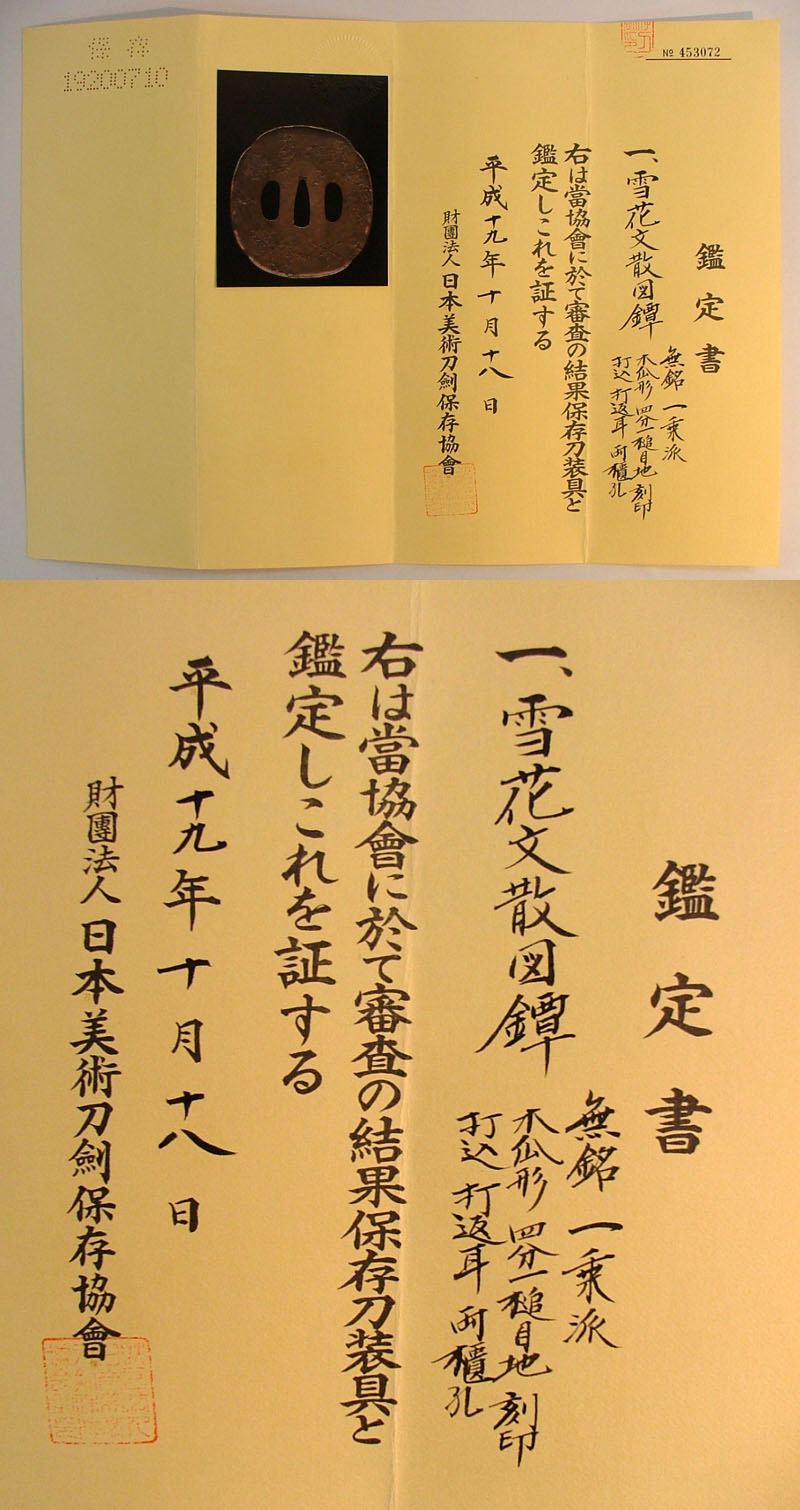 保存
19200710
№ 453072
鑑定書
一、雪花文散図鐔
無銘 一乗派
木瓜形 四分一槌目地 刻印
打込 打返耳 両櫃孔
右は當協會に於て審査の結果保存刀装具と
鑑定しこれを証する
平成十九年十月十八日
財團法人 日本美術刀劍保存協會
鑑定書
一、雪花文散図鐔
無銘 一乗派
木瓜形 四分一槌目地 刻印
打込 打返耳 両櫃孔
右は當協會に於て審査の結果保存刀装具と
鑑定しこれを証する
平成十九年十月十八日
財團法人 日本美術刀劍保存協會